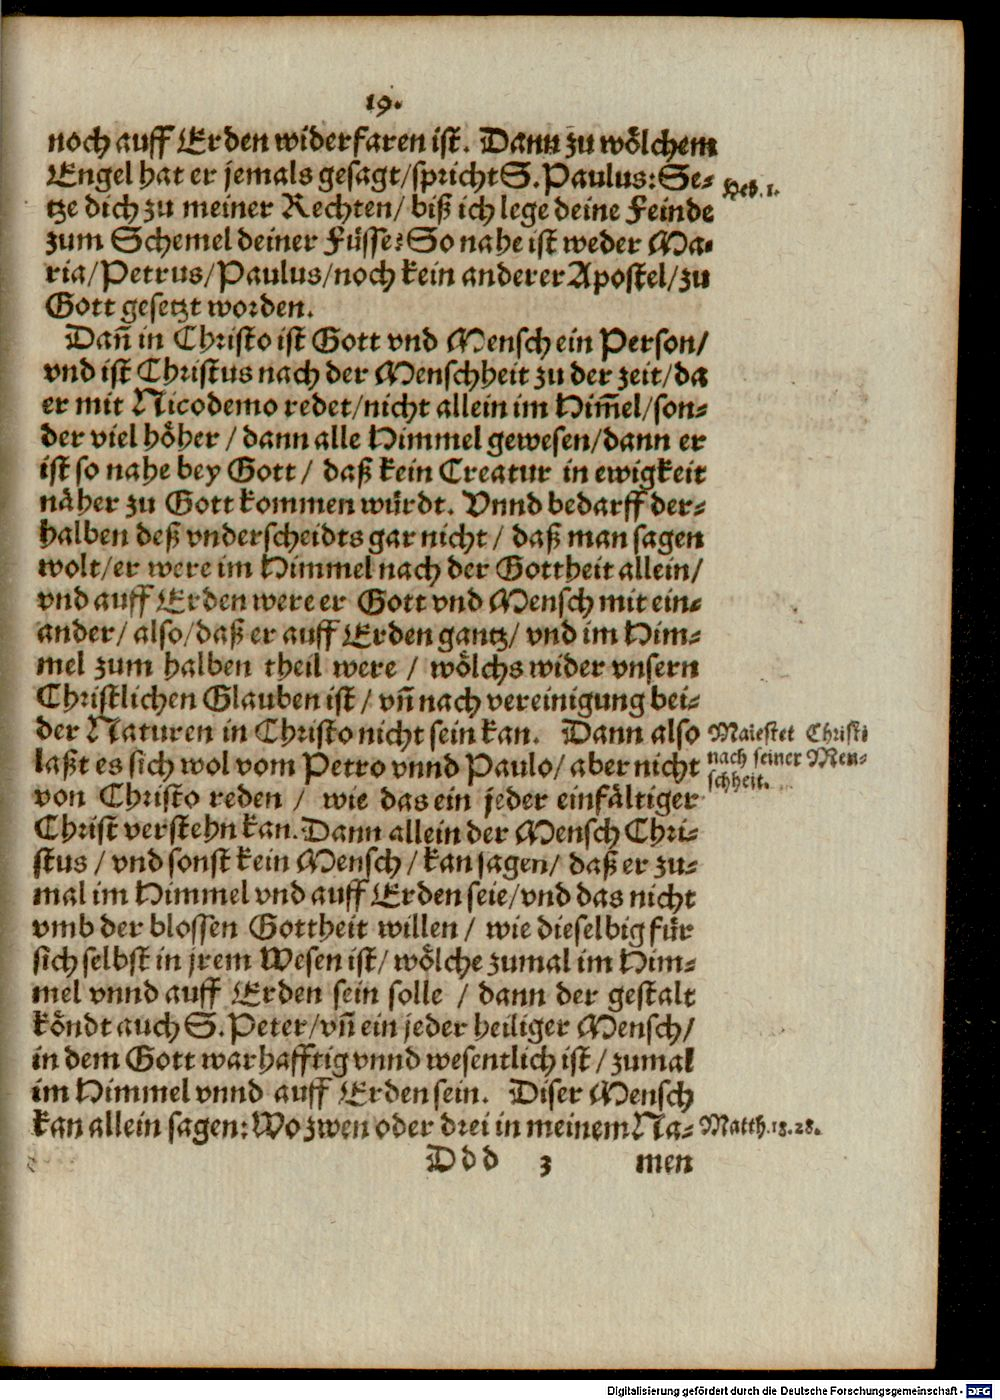 19.
noch auff Erden widerfaren ist. Dann zu wölchem
Engel hat er jemals gesagt/spricht S. Paulus: Se-
Heb. 1.
tze dich zu meiner Rechten/ biß ich lege deine Feinde
zum Schemel deiner Füsse? So nahe ist weder Ma-
ria/Petrus/Paulus/noch kein anderer Apostel/zu
Gott gesetzt worden.
Dañ in Christo ist Gott vnd Mensch ein Person/
vnd ist Christus nach der Menschheit zu der zeit/da
er mit Nicodemo redet/nicht allein im Him̃el/son-
der viel höher / dann alle Himmel gewesen/dann er
ist so nahe bey Gott / daß kein Creatur in ewigkeit
näher zu Gott kommen würdt. Vnnd bedarff der-
halben deß vnderscheidts gar nicht / daß man sagen
wolt/er were im Himmel nach der Gottheit allein/
vnd auff Erden were er Gott vnd Mensch mit ein-
ander/ also/daß er auff Erden gantz/ vnd im Him-
mel zum halben theil were / wölchs wider vnsern
Christlichen Glauben ist / vñ nach vereinigung bei-
der Naturen in Christo nicht sein kan. Dann also
Maiestet Christi
nach seiner Men-
schheit.
laßt es sich wol vom Petro vnnd Paulo/ aber nicht
von Christo reden / wie das ein jeder einfältiger
Christ verstehn kan. Dann allein der Mensch Chri-
stus / vnd sonst kein Mensch / kan sagen/ daß er zu-
mal im Himmel vnd auff Erden seie/vnd das nicht
vmb der blossen Gottheit willen / wie dieselbig für
sich selbst in jrem Wesen ist/ wölche zumal im Him-
mel vnnd auff Erden sein solle / dann der gestalt
köndt auch S. Peter/vñ ein jeder heiliger Mensch/
in dem Gott warhafftig vnnd wesentlich ist / zumal
im Himmel vnnd auff Erden sein. Diser Mensch
kan allein sagen: Wo zwen oder drei in meinem Na-
Matth. 18. 28.
Ddd 3 men
Digitalisierung gefördert durch die Deutsche Forschungsgemeinschaft - DFG